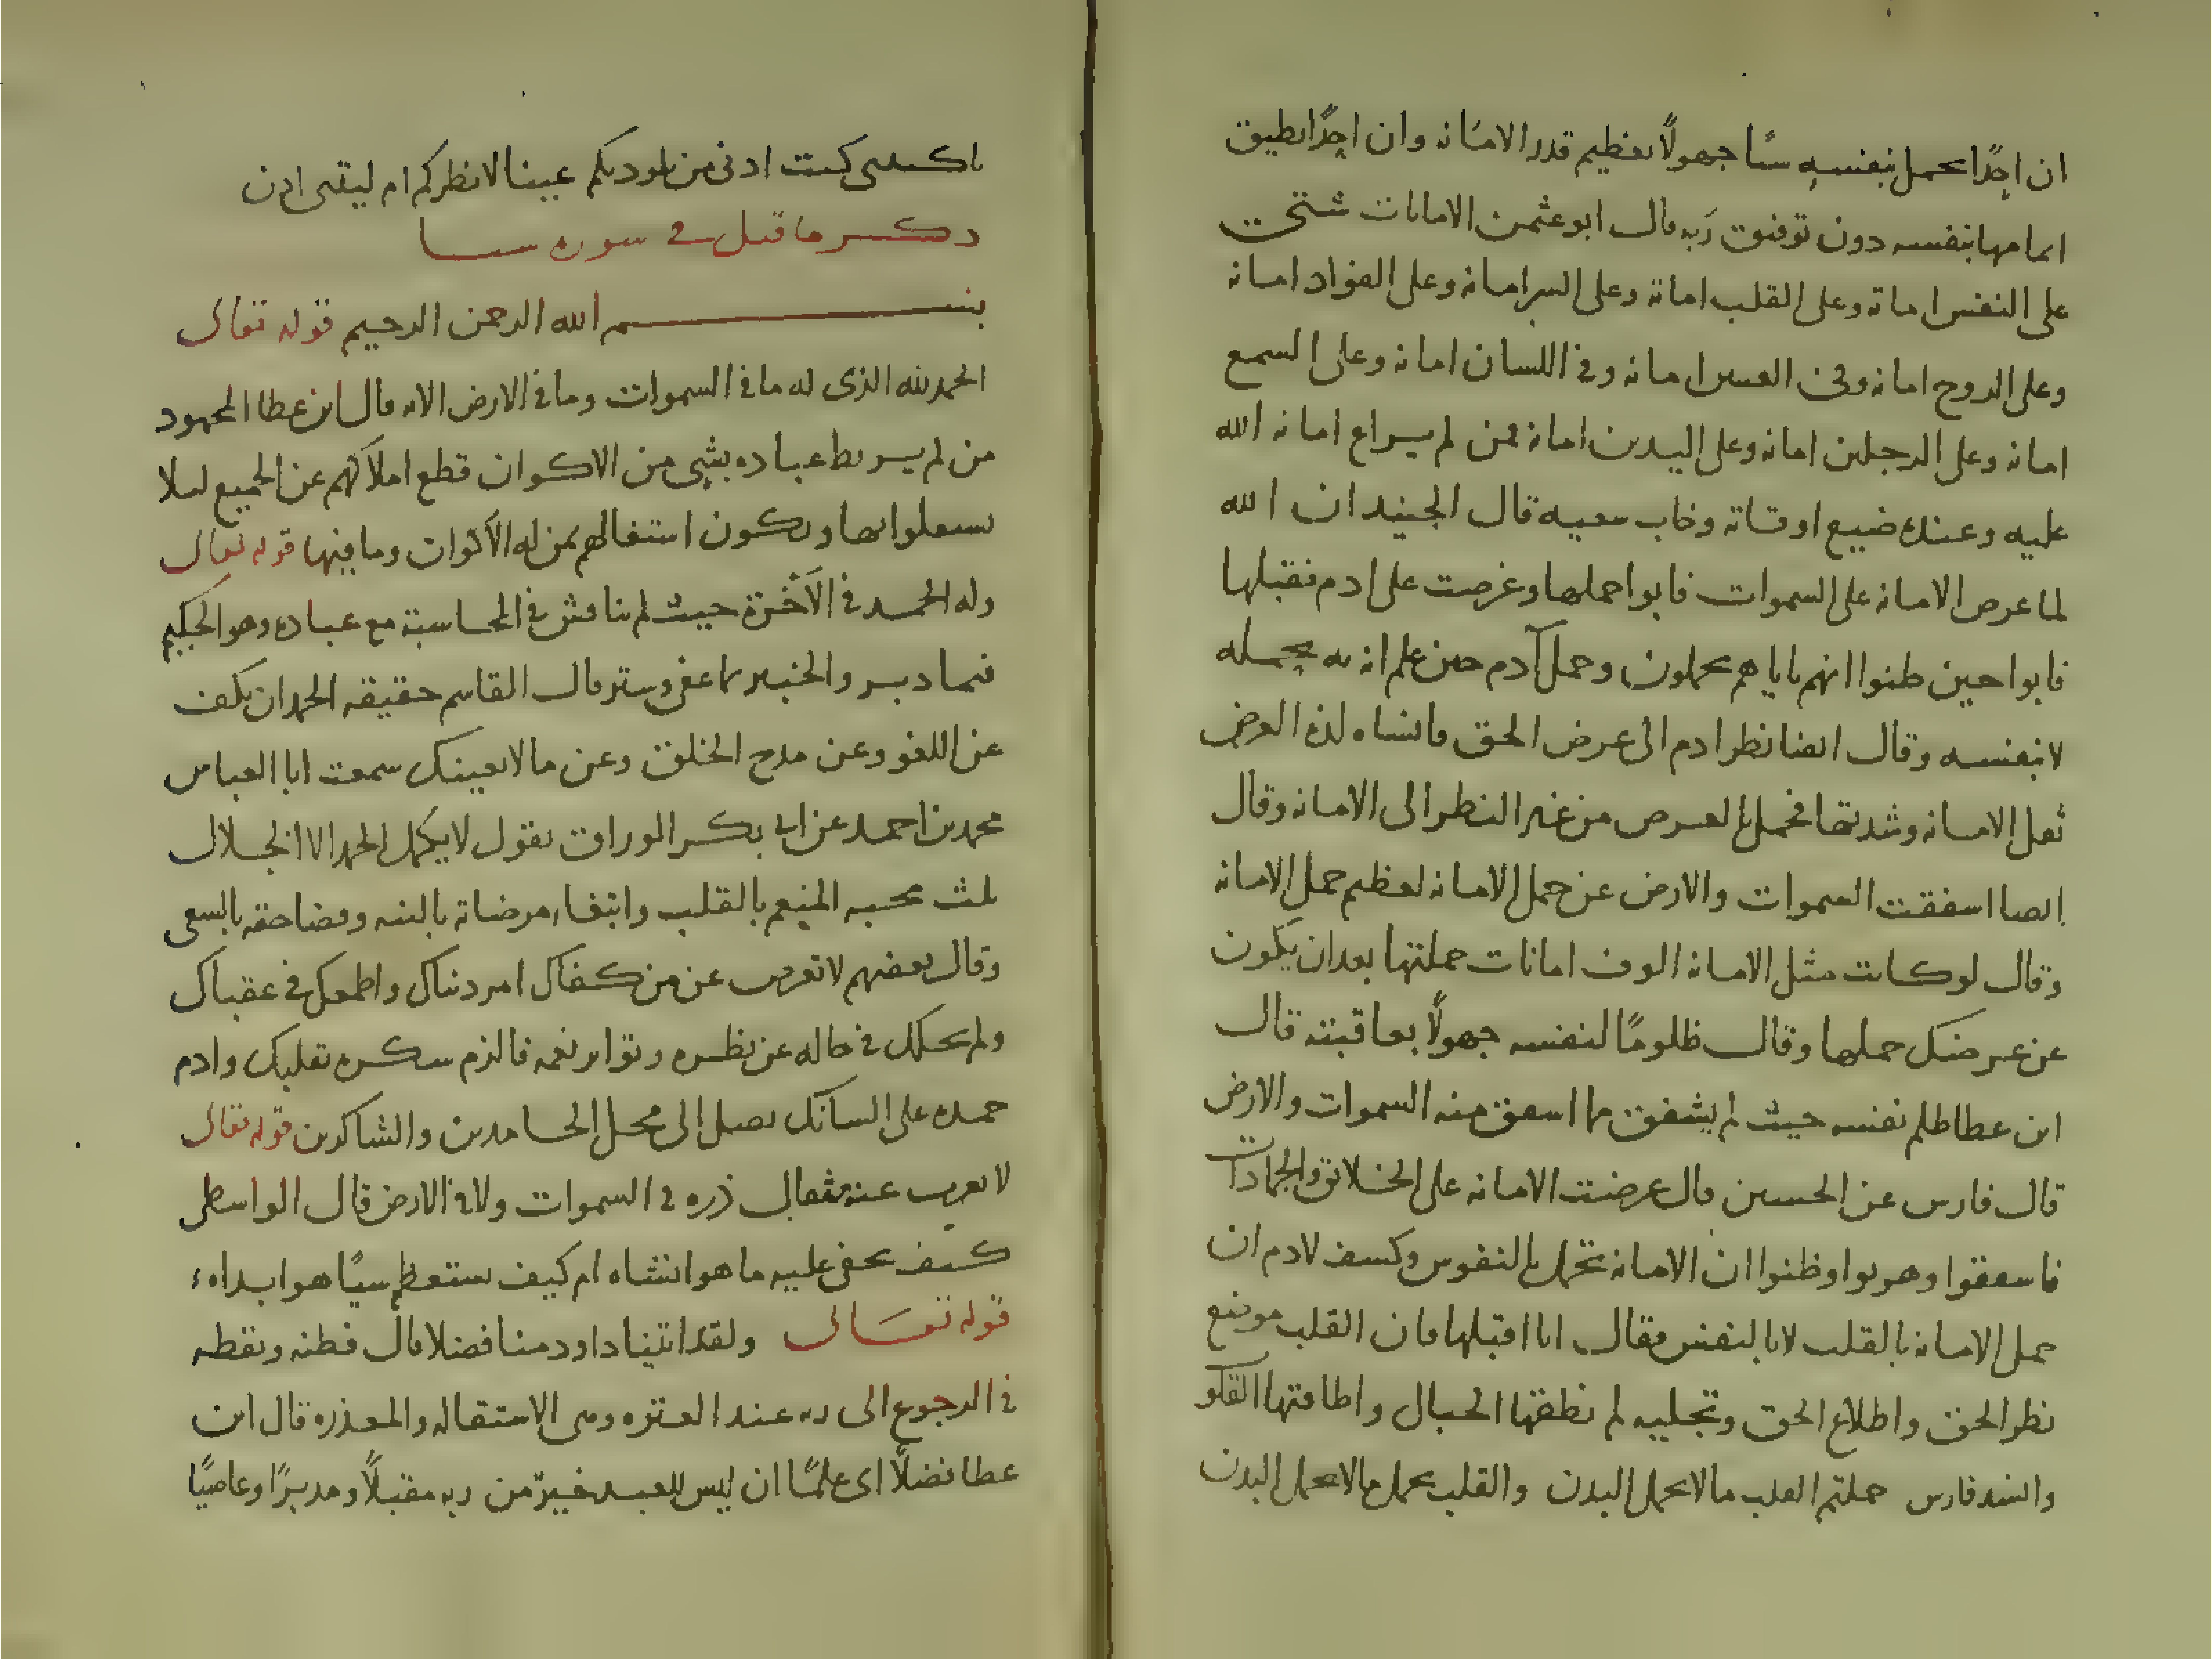 ان احدًا يحمل بنفسه شيئا جهولًا بعظيم قدر الامانه وان احدًا يطيق
اتمامها بنفسه دون توفيق ربه قال ابو عثمن الامانات شتى
على النفس امانة وعلى القلب امانة وعلى السر امانه وعلى الفواد امانه
وعلى الروح امانه وفى العين امانه وفى اللسان امانه وعلى السمع
امانه وعلى الرجلين امانه وعلى اليدين امانه فمن لم يراع امانه الله
عليه وعنده ضيع اوقاته وخاب سعيه قال الجنيد ان الله
لما عرض الامانه على السموات فابوا حملها وعرضت على ادم فقبلها
فابوا حين ظنوا انهم باياهم يحملون وحمل آدم حين علم انه به يحمله
لا بنفسه وقال ايضا نظر ادم الى عرض الحق فانساه لذه العرض
ثقل الامانه وشدتها فحمل بالعرض من غير النظر الى الامانه وقال
ايضا اشفقت السموات والارض عن حمل الامانه لعظيم حمل الامانه
وقال لو كانت مثل الامانه الوف امانات حملتها بعد ان يكون
عن عرضك حملها وقال ظلومًا لنفسه جهولًا بعاقبته قال
ابن عطا ظلم نفسه حيث لم يشفق مما اشفق منه السموات والارض
قال فارس عن الحسين قال عرضت الامانه على الخلائق والجمادات
فاشفقوا وهربوا وظنوا ان الامانه تحمل بالنفوس وكشف لادم ان
حمل الامانه بالقلب لا بالنفس فقال انا اقبلها فان القلب موضع
نظر الحق واطلاع الحق وتجليه لم تطقها الجبال واطاقتها القلو
وانشد فارس حملتم القلب ما لا يحمل البدن والقلب يحمل ما لا يحمل البدن
كنت ادنى من يلوذ بكم عينا لانظركم ام ليتنى اذن
ذكر ما قيل فى سوره سبا
بسم الله الرحمن الرحيم قوله تعالى
الحمد لله الذى له ما فى السموات وما فى الارض الايه قال ابن عطا المحمود
من لم يربط عباده بشى من الاكوان قطع املاكهم عن الجميع ليلا
يشتغلوا بها ويكون اشتغالهم بمن له الاكوان وما فيها قوله تعالى
وله الحمد فى الآخرة حيث لم يناقش فى المحاسبة مع عباده وهو الحكيم
فيما دبر والخبير بما عفى وستر قال القاسم حقيقه الحمد ان يكف
عن اللغو وعن مدح الخلق وعن ما لا يعينك سمعت ابا العباس
محمد بن احمد عن ابى بكر الوراق يقول لا يكمل الحمد الا الخلال
ثلث محبه المنعم بالقلب وابتغا مرضاته بالنيه وقضا حقه بالسعى
وقال بعضهم لا تعرض عن من كفاك امر دنياك واطمعك فى عقباك
ولم يخلك فى حاله عن نظره وتواتر نعمه فالزم شكره بقلبك وادم
حمده على لسانك تصل الى محل الحامدين والشاكرين قوله تعالى
لا يعزب عنه مثقال ذره فى السموات ولا فى الارض قال الواسطى
كيف يخفى عليه ما هو انشاه ام كيف يستعظم شيًا هو ابداه
قوله تعالى ولقد اتينا داود منا فضلا قال فطنه وتقظه
فى الرجوع الى ربه عند العثره وهى الاستقاله والمعذره قال ابن
عطا فضلًا اى علمًا ان ليس للعبد خير من ربه مقبلًا ومدبرًا وعاصيًا